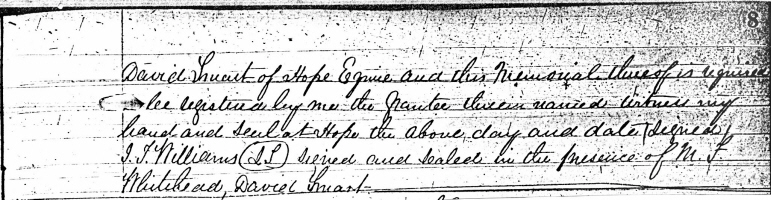 8
David Smart of Hope Equire and this Memorial thereof is required
to be registered by me the Grantee therein named witness my
hand and seal at Hope the above day and date (signed)
J. F. Williams (LS) signed and sealed in the presence of M. F.
Whitehead, David Smart